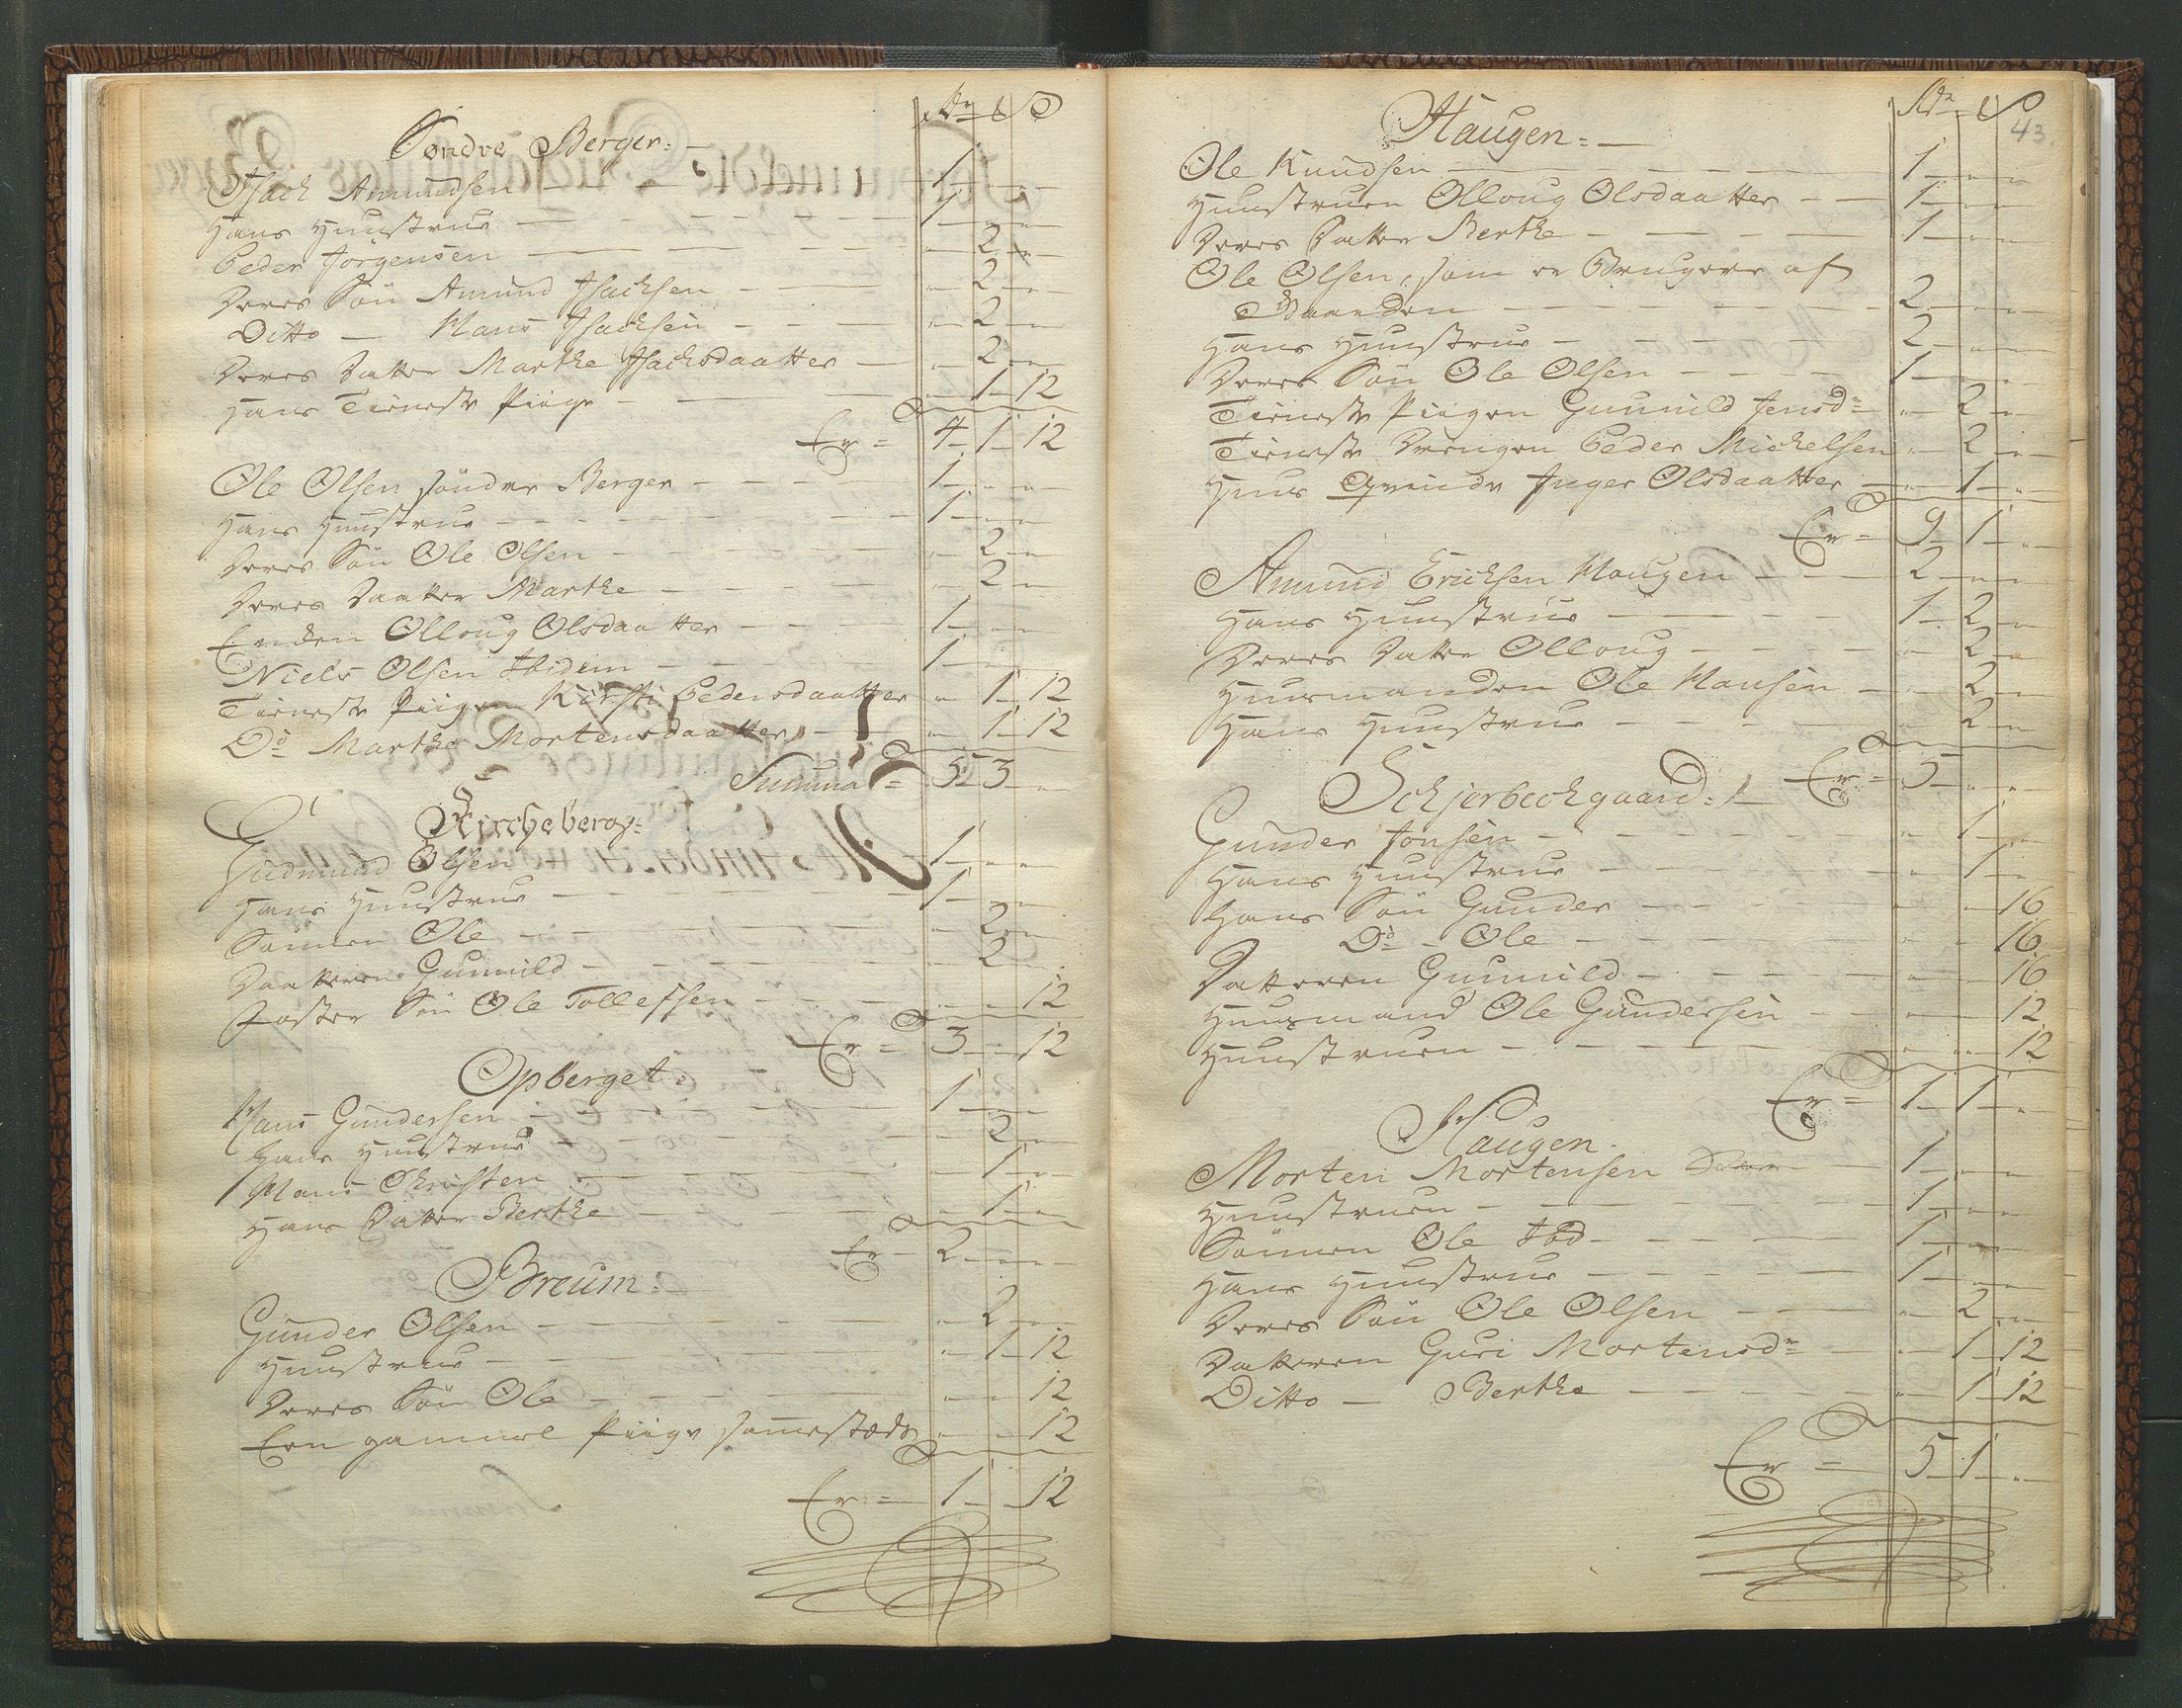 Rdr ℔ S
Søndre Berger:
Isach Amundsen 1 - -
Hans Hustrue 1 - -
Peder Jörgensen - 2 -
Deres Sön Amund Isachsen - 2 -
Ditto — Hans Isachsen - 2 -
Deres Datter Marthe Isachsdaatter - 2 -
Hans Tieneste Piige - 1 12
Er = 4 1 12
Ole Olsen söndre Berger 1 - -
Hans Hustrue 1 - -
Deres Sön Ole Olsen - 2 -
Deres Daatter Marthe - 2 -
Enken Olloug Olsdaatter 1 - -
Niels Olsen Ibidem 1 - -
Tieneste Piigen Kirsti Pedersdaatter - 1 12
Do Marthe Mortensdaatter - 1 12
Summa = 5 3 -
Kircheberg:
Gudmund Olsen 1 - -
Hans Hustrue 1 - -
Sönnen Ole - 2 -
Daatteren Gunnild - 2 -
Foster Sön Ole Tollefsen - - 12
Er = 3 - 12
Opberget:
Hans Gundersen 1 - -
Hans Hustrue - 2 -
Hans Christen - 1 -
Hans Datter Berthe - 1 -
Er 2 - -
Breum:
Gunder Olsen - 2 -
Hustrue - 1 12
Deres Sön Ole - - 12
Een gammel Piige sammestæds - - 12
Er = 1 - 12
Rdr ℔ S
43.
Haugen:
Ole Knudsen 1 - -
Hustruen Olloug Olsdaatter 1 - -
Deres Datter Berthe 1 - -
Ole Olsen, som er Bruger af
Gaarden 2 - -
Hans Hustrue 2 - -
Deres Sön Ole Olsen 1 - -
Tieneste Piigen Gunnild Jensdr - 2 -
Tieneste Drengen Peder Michelsen - 2 -
Huus Qvinde Inger Olsdaatter - 1 -
Er = 9 1 -
Amund Erichsen Haugen 2 - -
Hans Hustrue 1 2 -
Deres Datter Olloug - 2 -
Huusmanden Ole Hansen - 2 -
Hans Hustrue - 2 -
Er = 5 - -
Schjerbechgaard:
Gunder Jonsen - 1 -
Hans Hustrue - 1 -
Hans Sön Gunder - - 16
Do - Ole - - 16
Datteren Gunnild - - 16
Huusmand Ole Gundersen - - 12
Hustruen - - 12
Er = 1 1 -
Haugen.
Morten Mortensen 1 - -
Hustruen 1 - -
Sönnen Ole Ibd 1 - -
Hans Hustrue 1 - -
Deres Sön Ole Olsen - 2 -
Datteren Guri Mortensdr - 1 12
Ditto — Berthe - 1 12
Er = 5 1 -